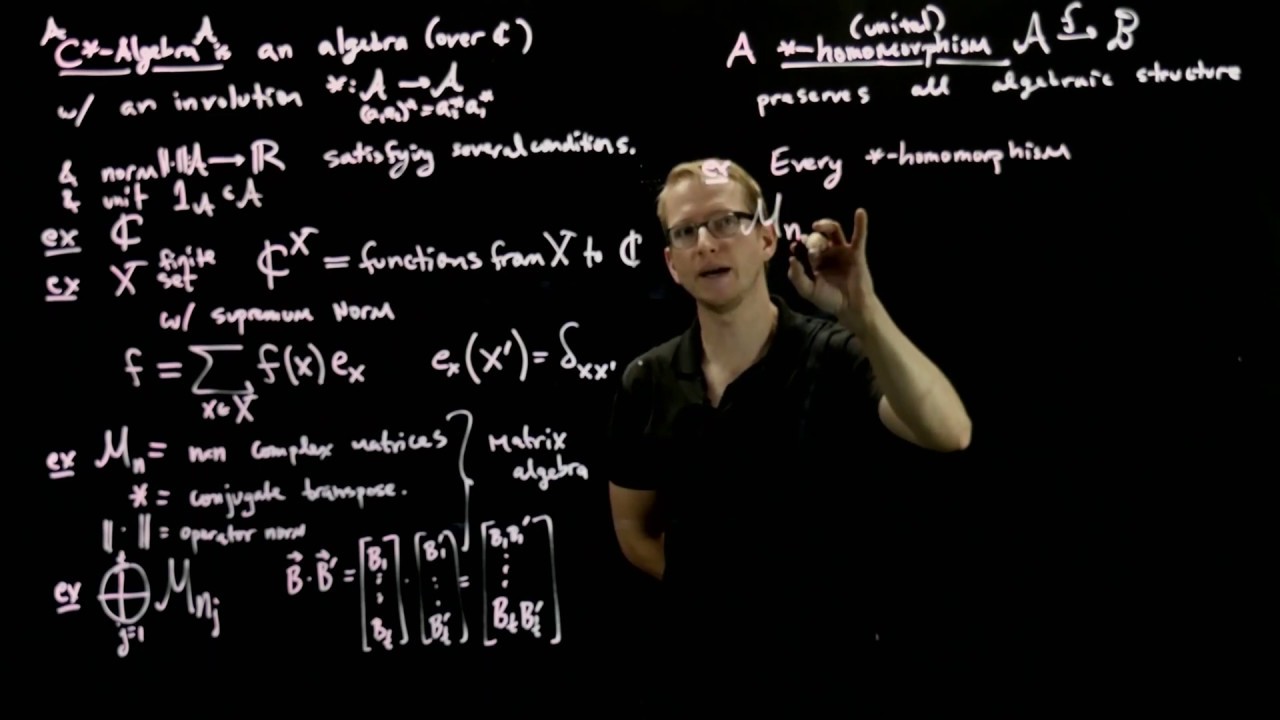 A C*-Algebra A is an algebra (over ℂ)
w/ an involution *: A → A
(a₁a₂)* = a₂* a₁*
& norm ‖·‖: A → ℝ satisfying several conditions.
& unit 1_A ∈ A
ex ℂ
ex X finite set ℂ^X = functions from X to ℂ
w/ supremum norm
f = ∑_{x∈X} f(x) e_x e_x(x') = δ_{xx'}
ex M_n = n×n complex matrices
* = conjugate transpose.
‖·‖ = operator norm
} Matrix algebra
ex ⊕_{j=1}^{t} M_{n_j} B⃗·B⃗' = [B₁ ⋮ B_t] · [B₁' ⋮ B_t'] = [B₁B₁' ⋮ B_tB_t']
A (unital) *-homomorphism A →f B
preserves all algebraic structure
ex Every *-homomorphism
M_n